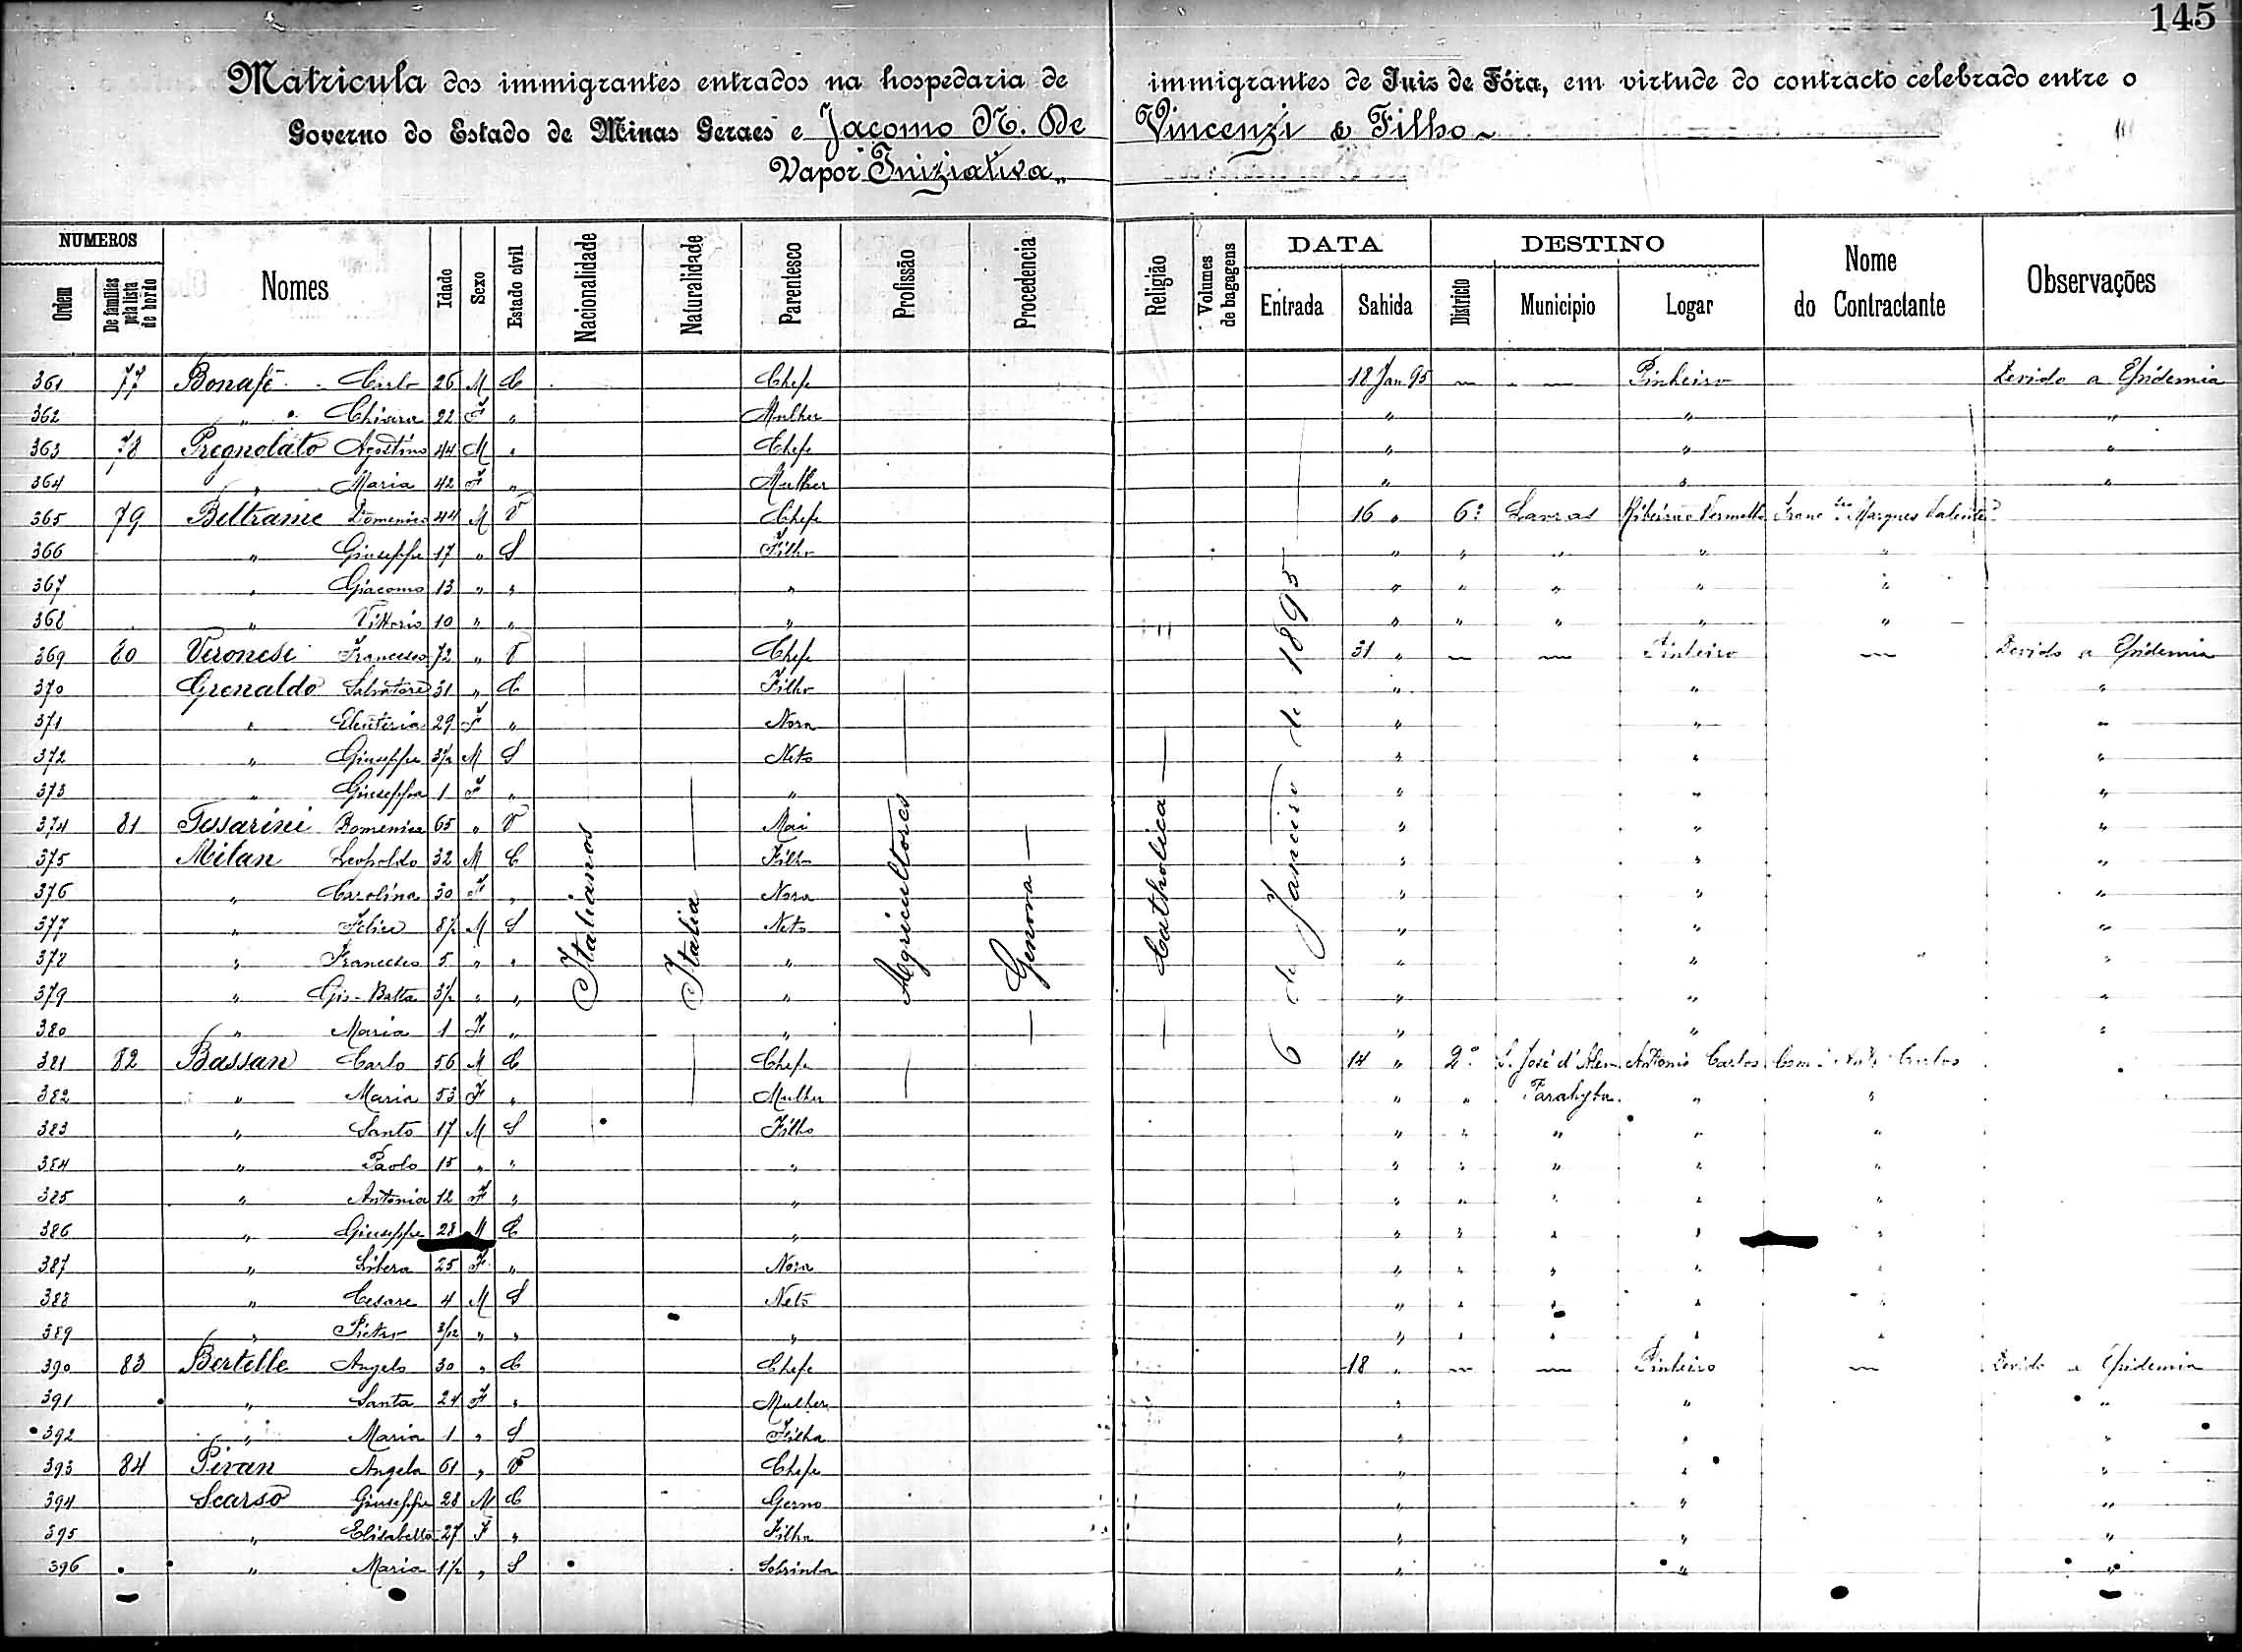 145
Matricula dos immigrantes entrados na hospedaria de immigrantes de Juiz de Fóra, em virtude do contracto celebrado entre o
Governo do Estado de Minas Geraes e Jacomo N. De Vincenzi & Filho
Vapor "Iniziativa"
NUMEROS Nomes Idade Sexo Estado civil Nacionalidade Naturalidade Parentesco Profissão Procedencia Religião Volumes de bagagens DATA DESTINO Nome do Contractante Observações
Ordem De familias pela lista de bordo Entrada Sahida Districto Municipio Logar
Italianos Italia Agricultores Genova Catholica 6 de Janeiro de 1895
361 77 Bonafé Carlo 26 M C Chefe 18 Jan 95 — — Pinheiro Devido a Epidemia
362 " Chiara 22 F " Mulher " " "
363 78 Pregnolato Agostino 44 M " Chefe " " "
364 " Maria 42 F " Mulher " " "
365 79 Beltrame Domenico 44 M V Chefe 16 " 6º Lavras Ribeirão Vermelho Franc.co Marques Valente
366 " Giuseppe 17 " S Filho " " " " "
367 " Giacomo 13 " " " " " " " "
368 " Vittorio 10 " " " " " " " "
369 80 Veronese Francesco 72 " V Chefe 31 " — — Pinheiro — Devido a Epidemia
370 Grenaldo Salvatore 31 " C Filho " " "
371 " Eleuteria 29 F " Nora " " "
372 " Giuseppe 3½ M S Neto " " "
373 " Giuseppa 1 F " " " " "
374 81 Tessarini Domenica 65 " V Mai " " "
375 Milan Leopoldo 32 M C Filho " " "
376 " Carolina 30 F " Nora " " "
377 " Felice 8½ M S Neto " " "
378 " Francesco 5 " " " " " "
379 " Gio-Batta 3½ " " " " " "
380 " Maria 1 F " " " " "
381 82 Bassan Carlo 56 M C Chefe 14 " 2º S. José d'Alem Antonio Carlos Carlos
382 " Maria 53 F " Mulher " " Parahyba " "
383 " Santo 17 M S Filho " " " " "
384 " Paolo 15 " " " " " " " "
385 " Antonia 12 F " " " " " " "
386 " Giuseppe 28 M C " " " " " "
387 " Libera 25 F " Nora " " " " "
388 " Cesare 4 M S Neto " " " " "
389 " Pietro 3/12 " " " " " " " "
390 83 Bertelle Angelo 30 " C Chefe 18 " — — Pinheiro — Devido a Epidemia
391 " Santa 24 F " Mulher " " "
392 " Maria 1 " S Filha " " "
393 84 Pivan Angela 61 " V Chefe " " "
394 Scarso Giuseppe 28 M C Gerno " " "
395 " Elisabetta 27 F " Filha " " "
396 " Maria 1½ " S Sobrinha " " "